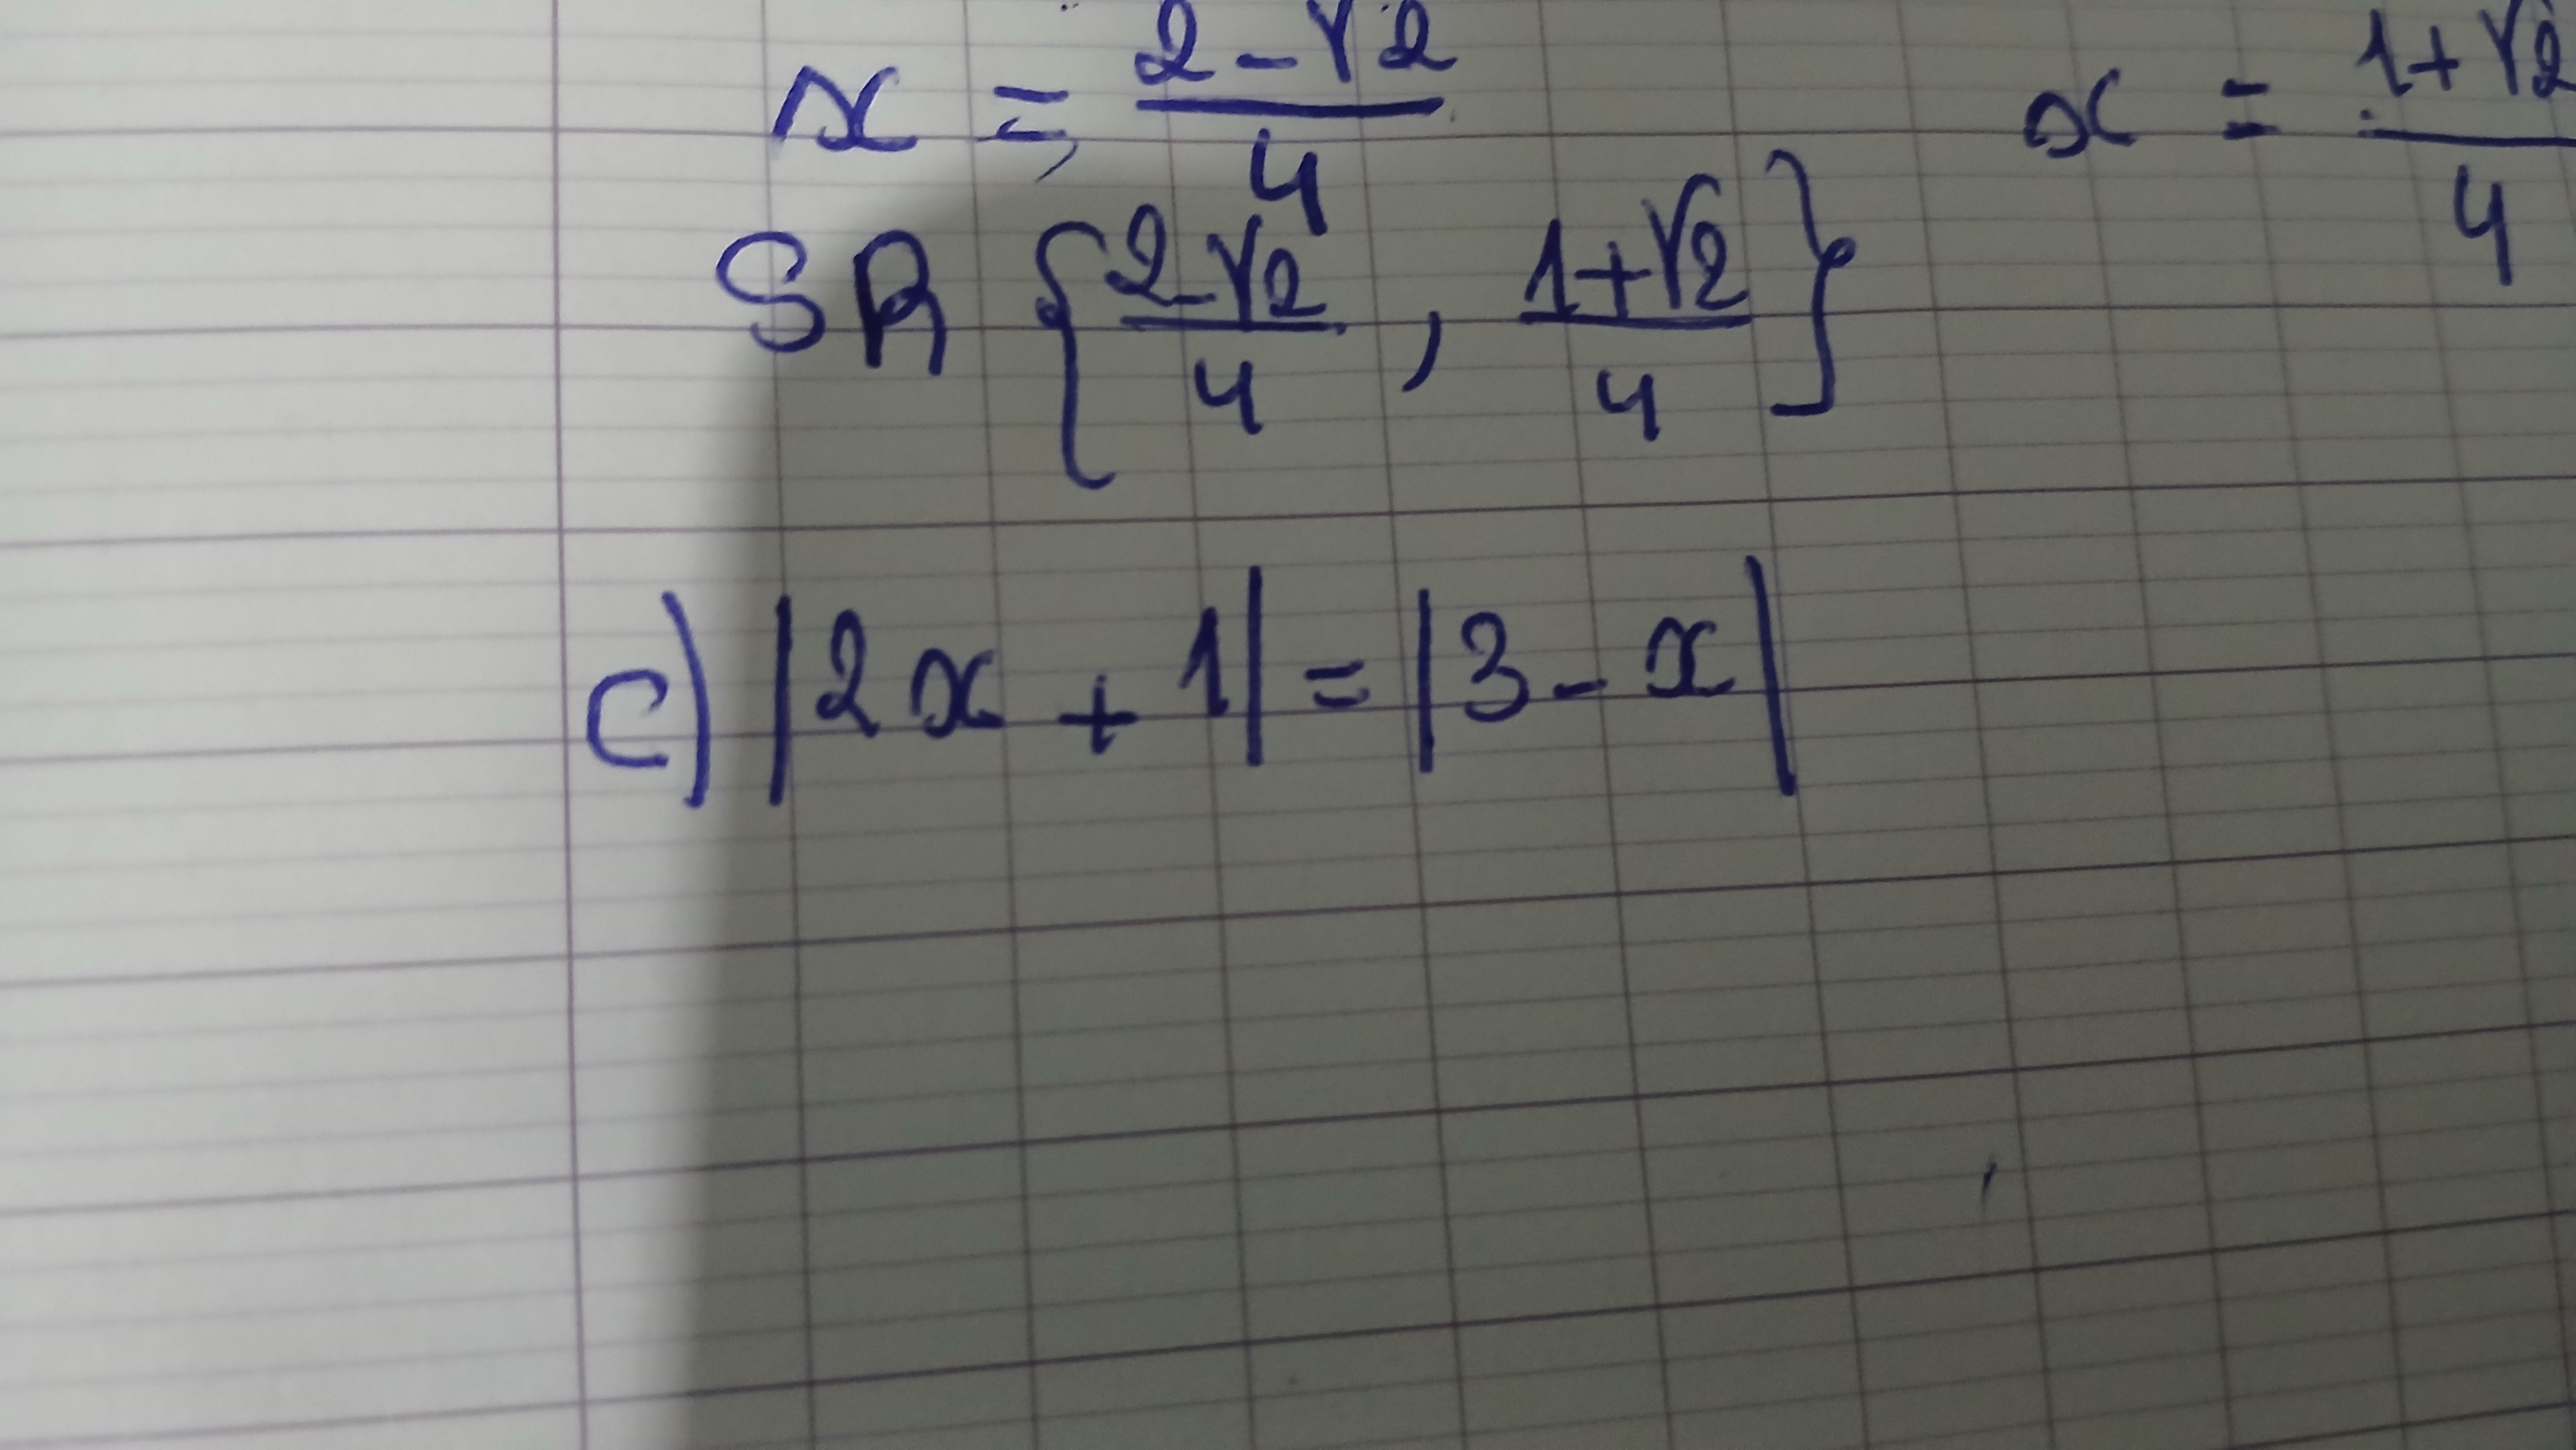 x = (2-√2)/4    x = (1+√2)/4
SR {(2-√2)/4 , (1+√2)/4}
c) |2x + 1| = |3 - x|